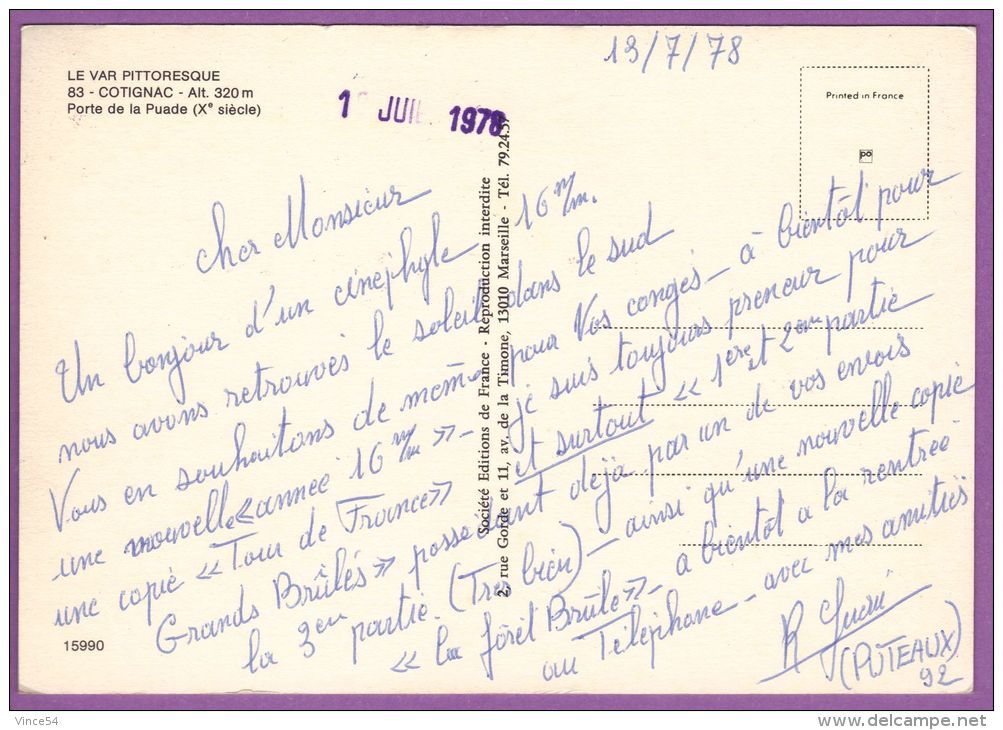 13/7/78
LE VAR PITTORESQUE
83 - COTIGNAC - Alt. 320 m
Porte de la Puade (Xe siècle)
1 JUIL 1978
Printed in France
po
Cher Monsieur
Un bonjour d'un cinéphyle 16 m/m.
nous avons retrouvés le soleil dans le sud
Vous en souhaitons de meme pour Vos congés - à bientôt pour
une nouvelle « année 16 m/m » - je suis toujours preneur pour
une copie « Tour de France » et surtout « 1ere et 2eme partie
Grands Brûlés » possedant dejà par un de vos envois
la 3em partie. (Tres bien) - ainsi qu'une nouvelle copie
« la forêt Brûle » - a bientôt a la rentrée
au Téléphone - avec mes amitiés
R
(PUTEAUX)
92
Société Editions de France - Reproduction interdite
2, rue Gorde et 11, av. de la Timone, 13010 Marseille - Tél. 79.24.57
15990
Vince54
delcampe.net